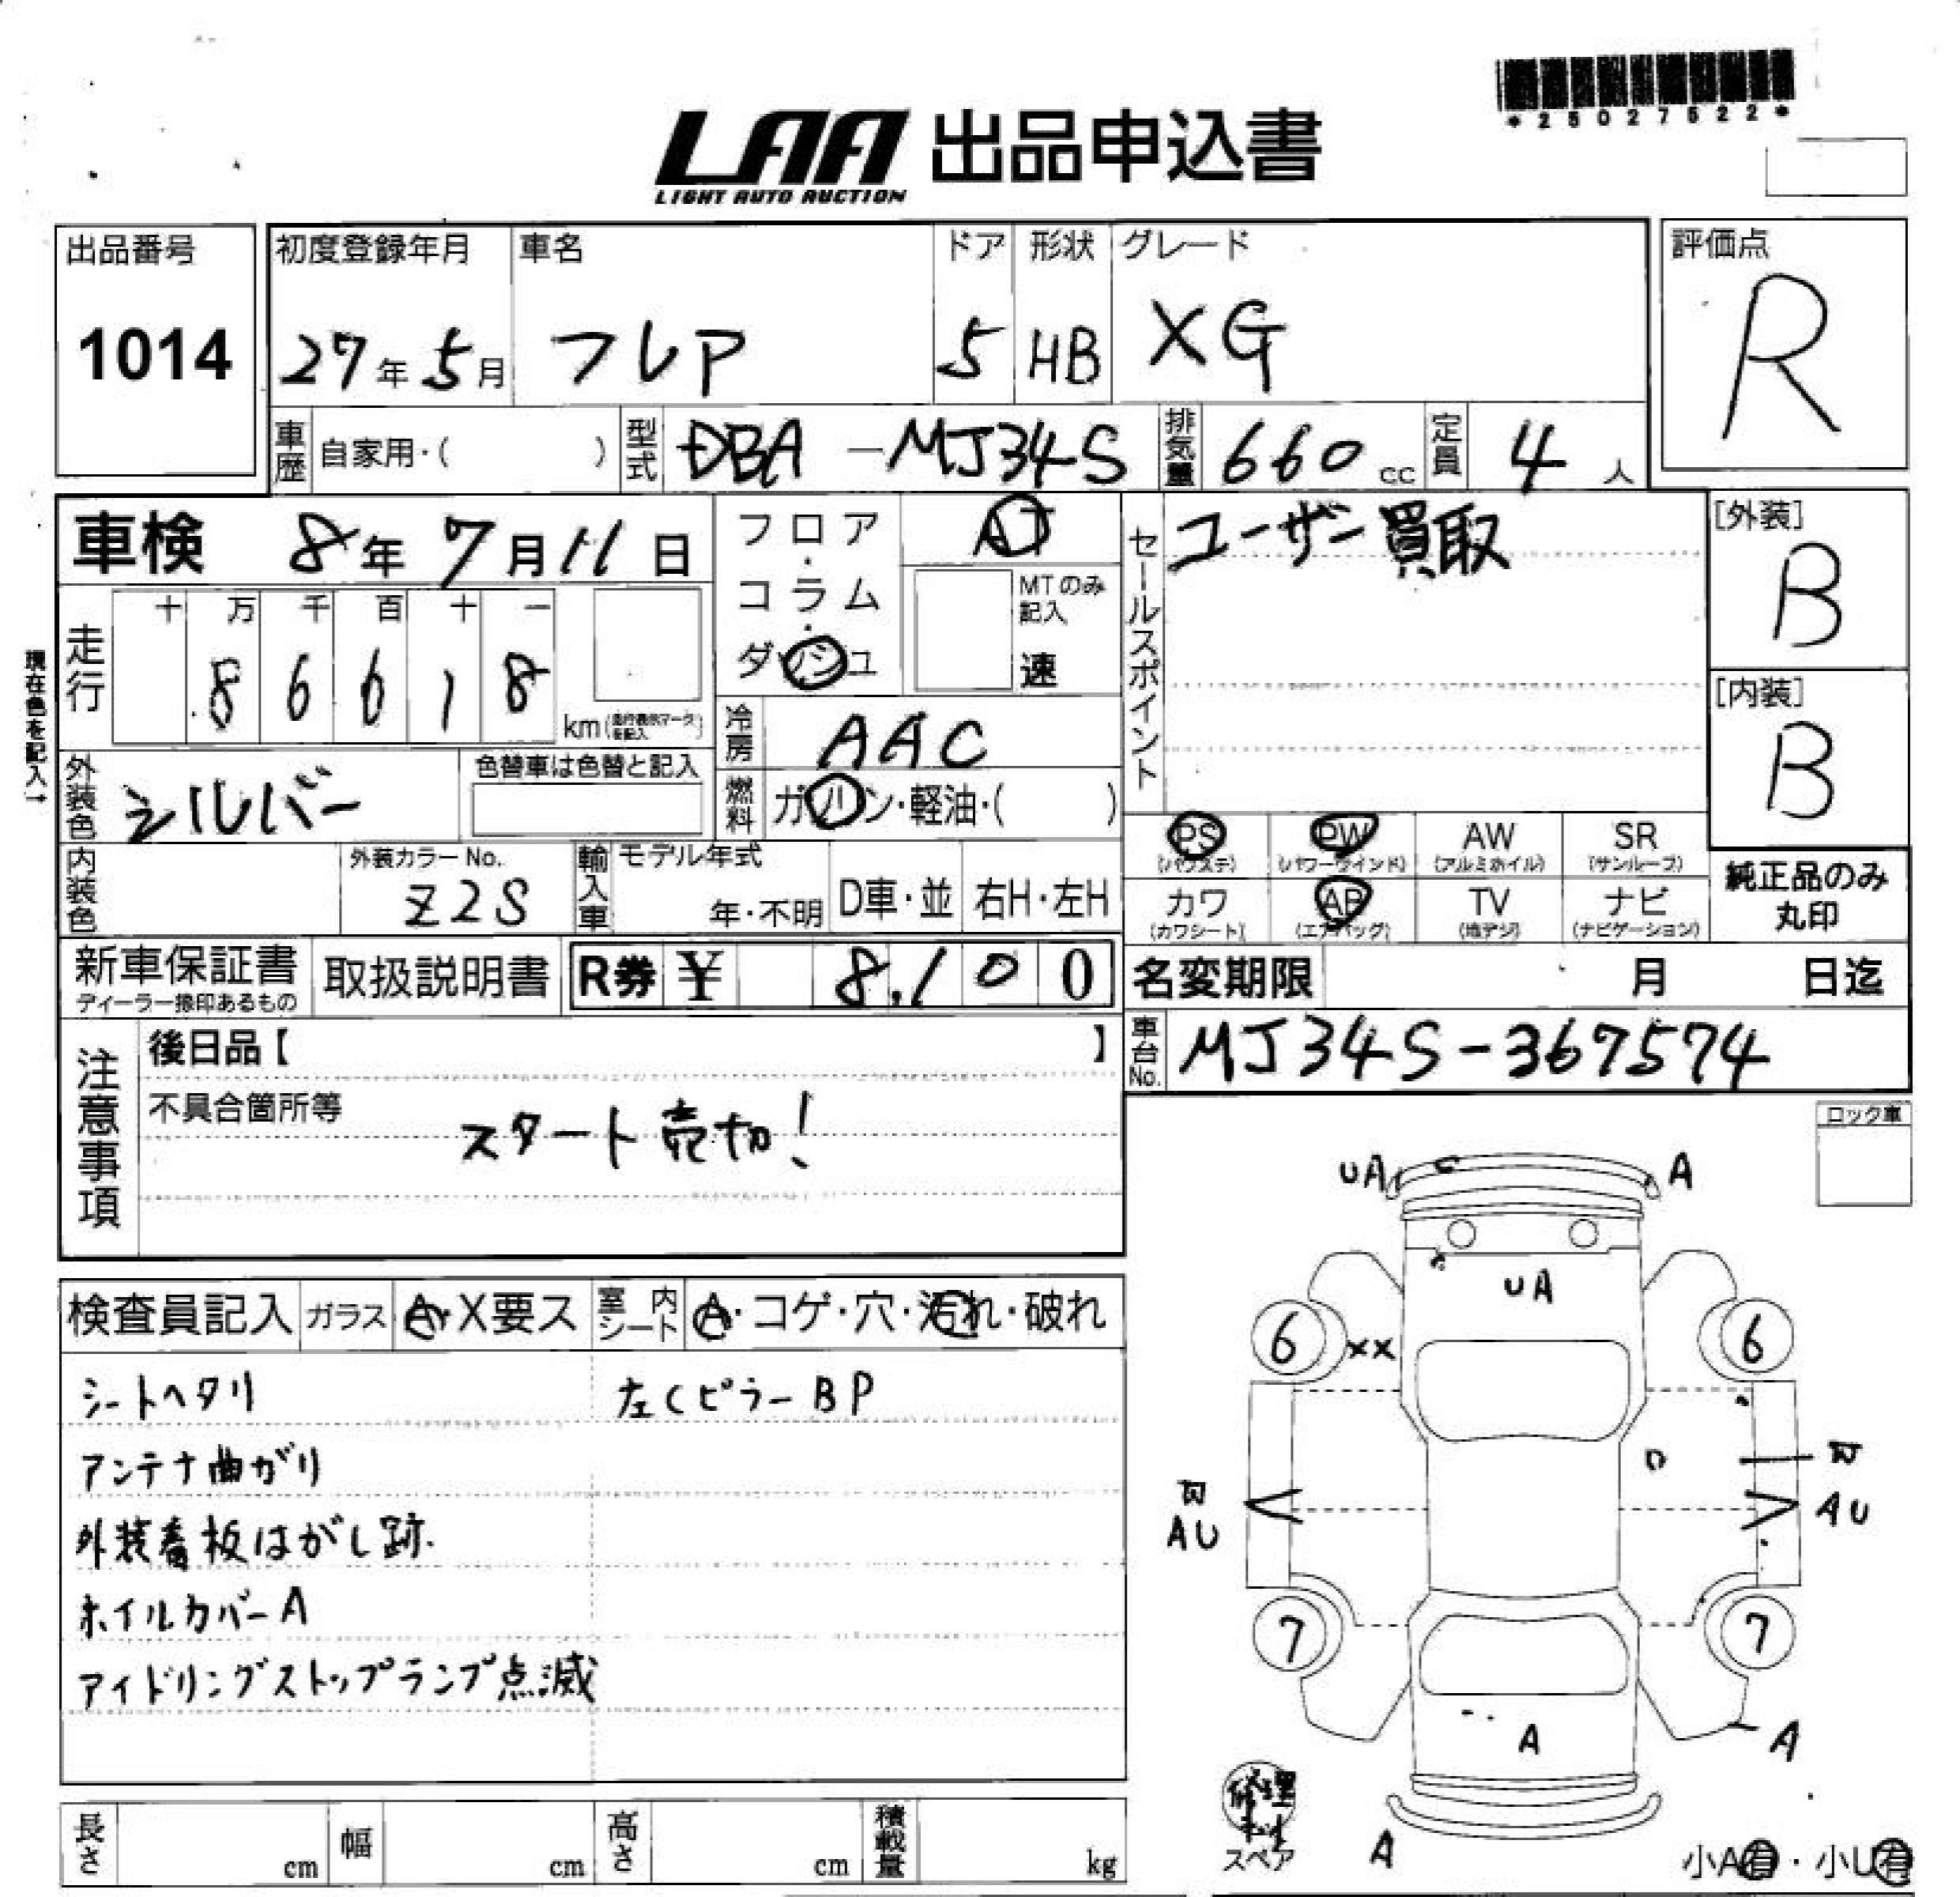 *25027522*
LAA 出品申込書
LIGHT AUTO AUCTION
出品番号
1014
初度登録年月
27年5月
車名
フレア
ドア
5
形状
HB
グレード
XG
評価点
R
車歴 自家用・( )
型式 DBA-MJ34S
排気量 660cc
定員 4人
車検 8年7月11日
フロア・コラム・ダッシュ
AT
MTのみ記入
速
セールスポイント
ユーザー買取
[外装]
B
[内装]
B
現在色を記入→
走行
十 万 千 百 十 一
8 6 6 1 8
km(走行表示マークを記入)
冷房 AAC
外装色 シルバー
色替車は色替と記入
燃料 ガソリン・軽油・( )
内装色
外装カラーNo.
Z2S
輸入車
モデル年式
年・不明
D車・並
右H・左H
PS (パワステ)
PW (パワーウインド)
AW (アルミホイル)
SR (サンルーフ)
カワ (カワシート)
AB (エアバッグ)
TV (地デジ)
ナビ (ナビゲーション)
純正品のみ丸印
新車保証書
ディーラー捺印あるもの
取扱説明書
R券 ¥ 8,100
名変期限 月 日迄
車台No. MJ34S-367574
注意事項
後日品【 】
不具合箇所等
スタート売切!
ロック車
検査員記入
ガラス A・X要ス
室内シート A・コゲ・穴・汚れ・破れ
シートヘタリ
左CピラーBP
アンテナ曲がり
外装看板はがし跡.
ホイルカバーA
アイドリングストップランプ点滅
UA
A
UA
6
XX
6
AU
AU
7
7
A
A
A
修理キット
スペア
小A有・小U有
長さ cm
幅 cm
高さ cm
積載量 kg